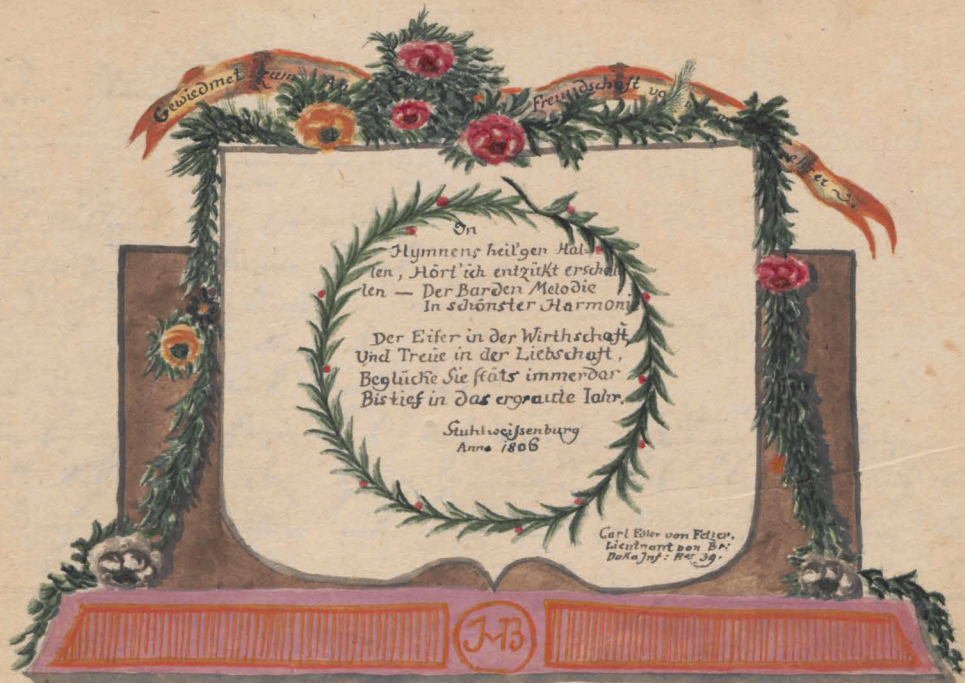 Gewiedmet zum
Freundschaft
In
Hymnens heil'gen Hal-
len, Hört' ich entzükt erschal
len — Der Barden Melodie
In schönster Harmonie
Der Eifer in der Wirthschaft,
Und Treüe in der Liebschaft,
Beglücke Sie stäts immerdar
Bis tief in das ergraute Iahr.
Stuhlweissenburg
Anno 1806
Carl Edler von
Lieutnant von Br:
Duka Inf: 39.
JvB